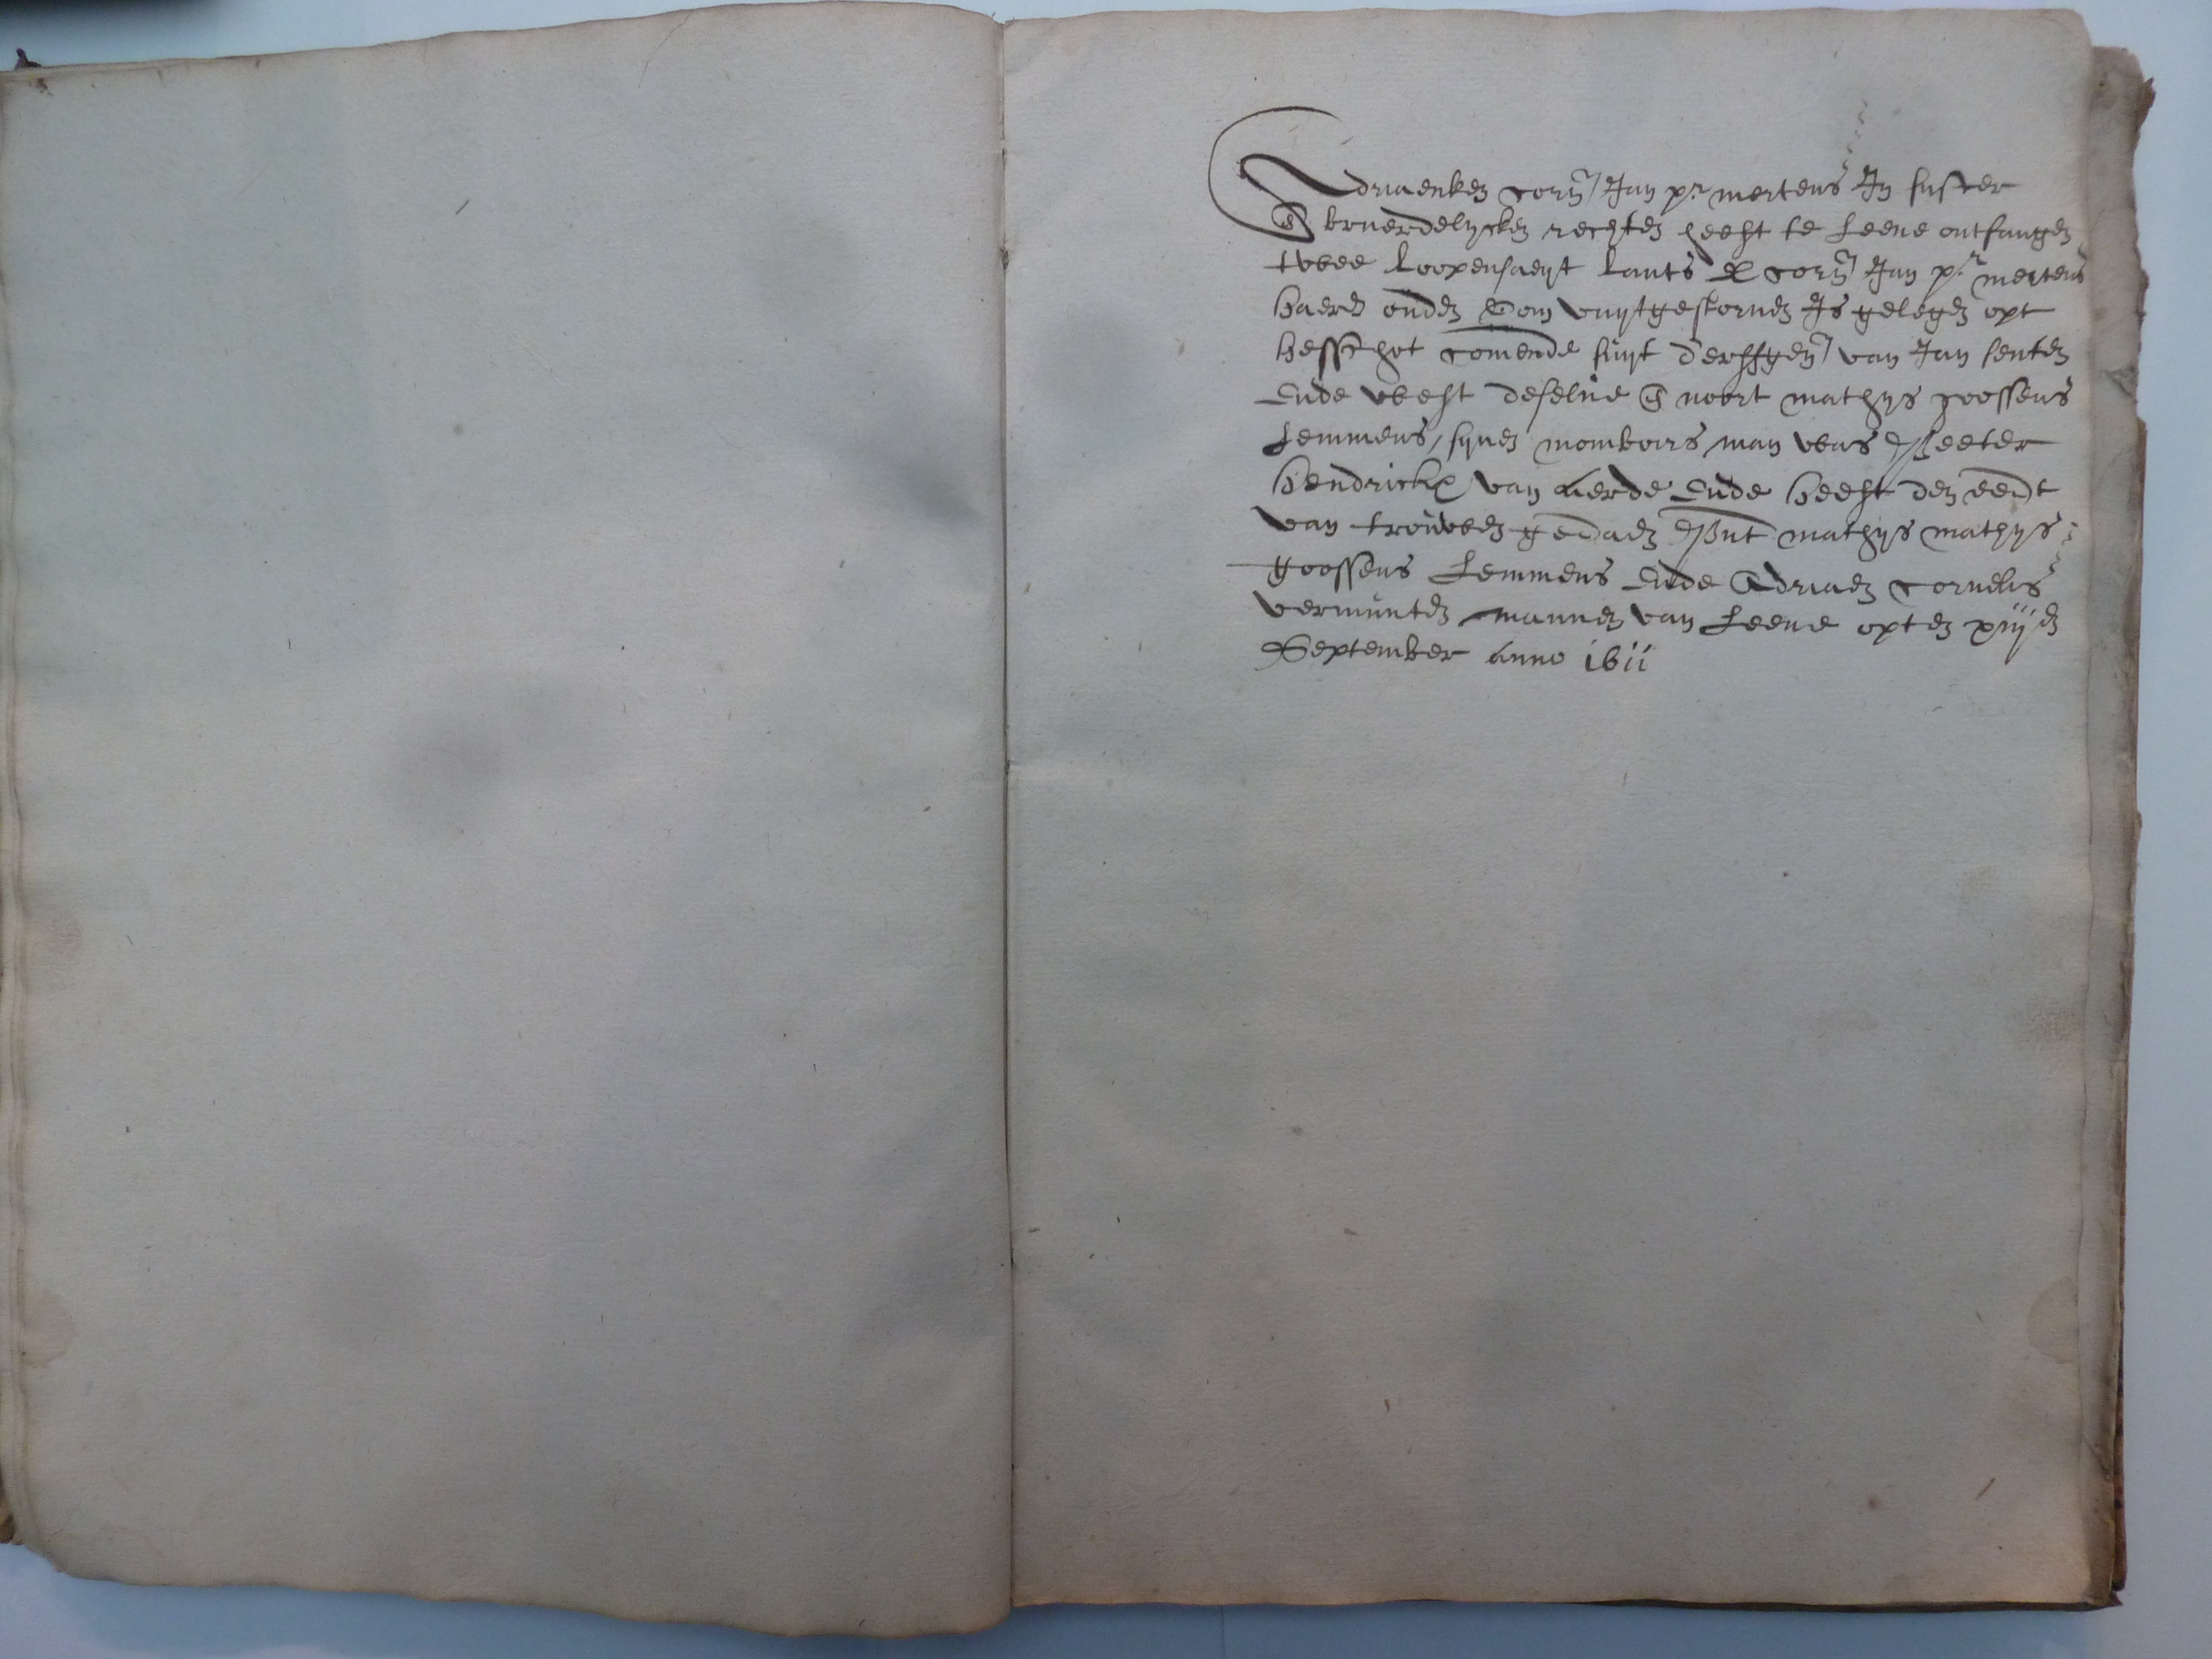 Adriaenken Corn Jan pr mertens In suster
& bruerdelycken rechten heeft te leene ontfangen
twee loopensaeyt lants Corn Jan pr mertens
haers ouden Oom vuytgestorven Is gelegen opt
hesschot comende suyt d'erffgen van Jan senten
Ende west deselve & noort mathys goossens
Lemmens, synen momboirs man was Peeter
hendrickx van aerde Ende heeft den eendt
van trouwen gedaen Pnt mathys mathys
goossens Lemmens Ende Adriaen Cornelis
vermunten mannen van Leene opten xiijen
September anno 1611